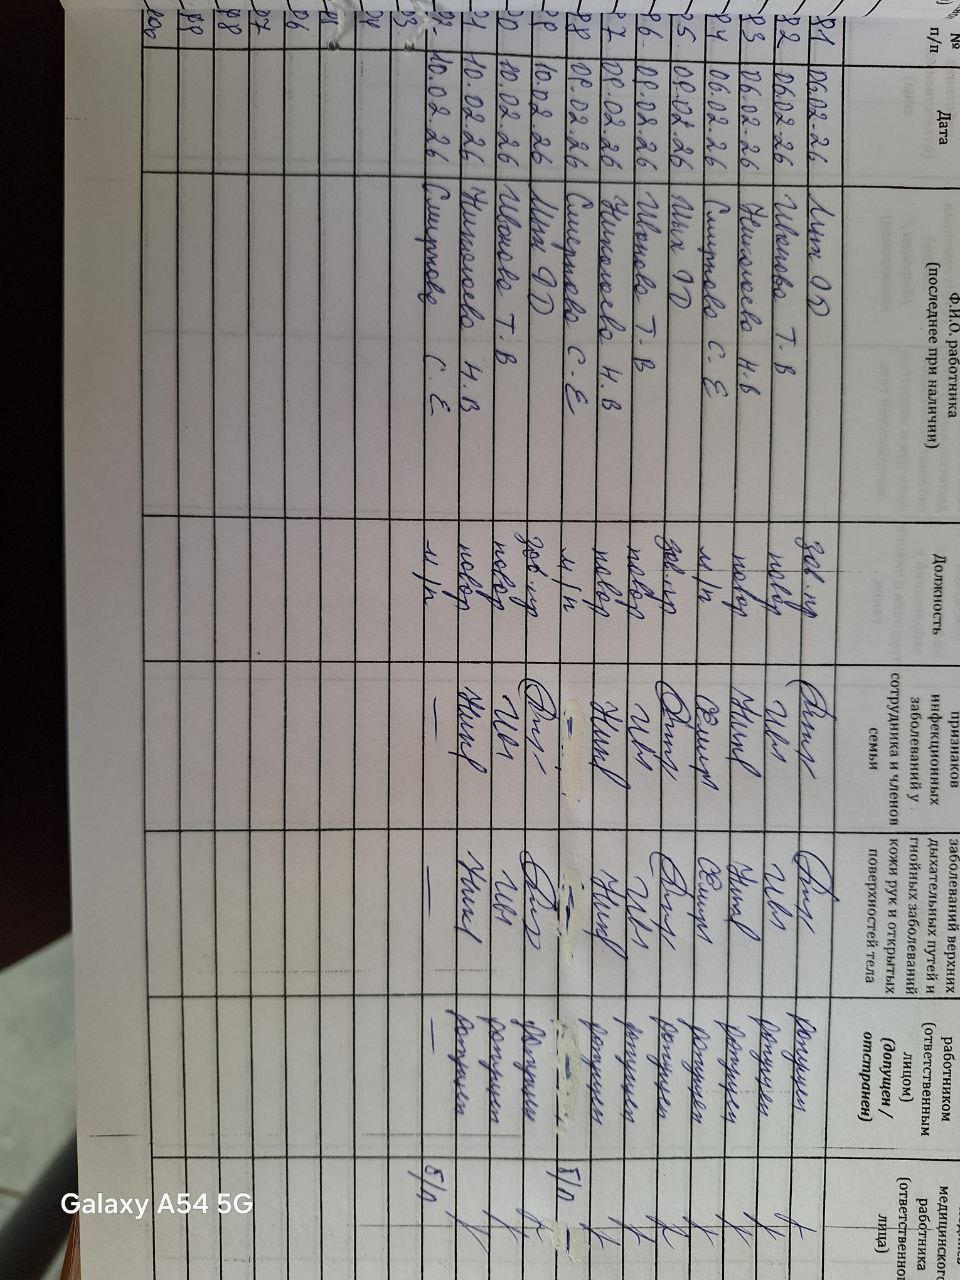 № п/п Дата Ф.И.О. работника (последнее при наличии) Должность признаков инфекционных заболеваний у сотрудника и членов семьи заболеваний верхних дыхательных путей и гнойных заболеваний кожи рук и открытых поверхностей тела работником (ответственным лицом) (допущен / отстранен) медицинского работника (ответственного лица)
81 06.02.26 зав.пр допущен
82 06.02.26 Иванова Т.В повар Ив допущен
83 06.02.26 Николаева Н.В повар Ник допущен
84 06.02.26 Смирнова С.Е м/п Смир допущен
85 09.02.26 зав.пр допущен
86 09.02.26 Иванова Т.В повар Ив допущен
87 09.02.26 Николаева Н.В повар Ник допущен
88 09.02.26 Смирнова С.Е м/п - - - б/л -
89 10.02.26 зав.пр допущен
90 10.02.26 Иванова Т.В повар Ив допущен
91 10.02.26 Николаева Н.В повар Ник допущен
92 10.02.26 Смирнова С.Е м/п — — — б/л
93
94
95
96
97
98
99
100
Galaxy A54 5G